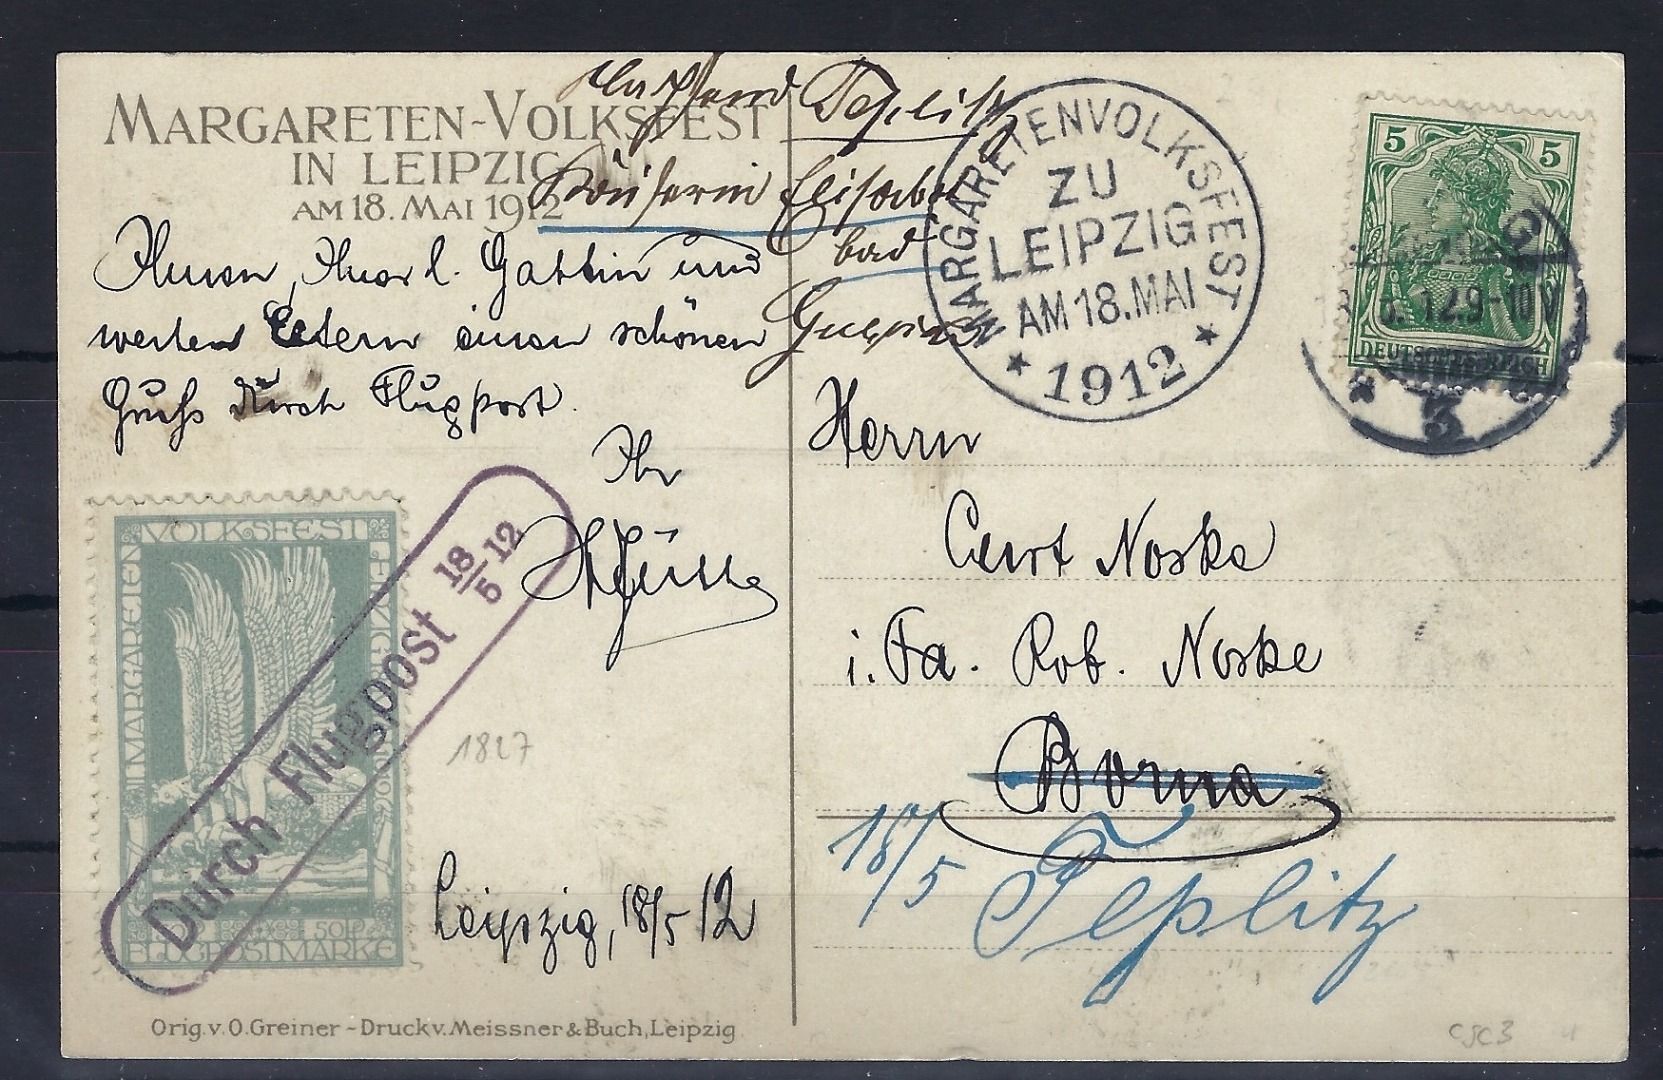 MARGARETEN-VOLKSFEST
IN LEIPZIG
AM 18. MAI 1912
Teplitz
Elisabet
bad
Ihnen, Ihrer l. Gattin und
werten Eltern einen schönen
Gruss durch Flugpost.
Ihr
Leipzig, 18/5 12
VOLKSFEST
MARGARETEN
LEIPZIG
50 P
FLUGPOSTMARKE
Durch Flugpost 18/5 12
1827
Orig. v. O. Greiner - Druck v. Meissner & Buch, Leipzig
MARGARETENVOLKSFEST
ZU
LEIPZIG
AM 18. MAI
* 1912 *
5 5
DEUTSCHES REICH
12.9-10V
* 3
Herrn
Curt Noske
i. Fa. Rob. Noske
Borna
18/5 Teplitz